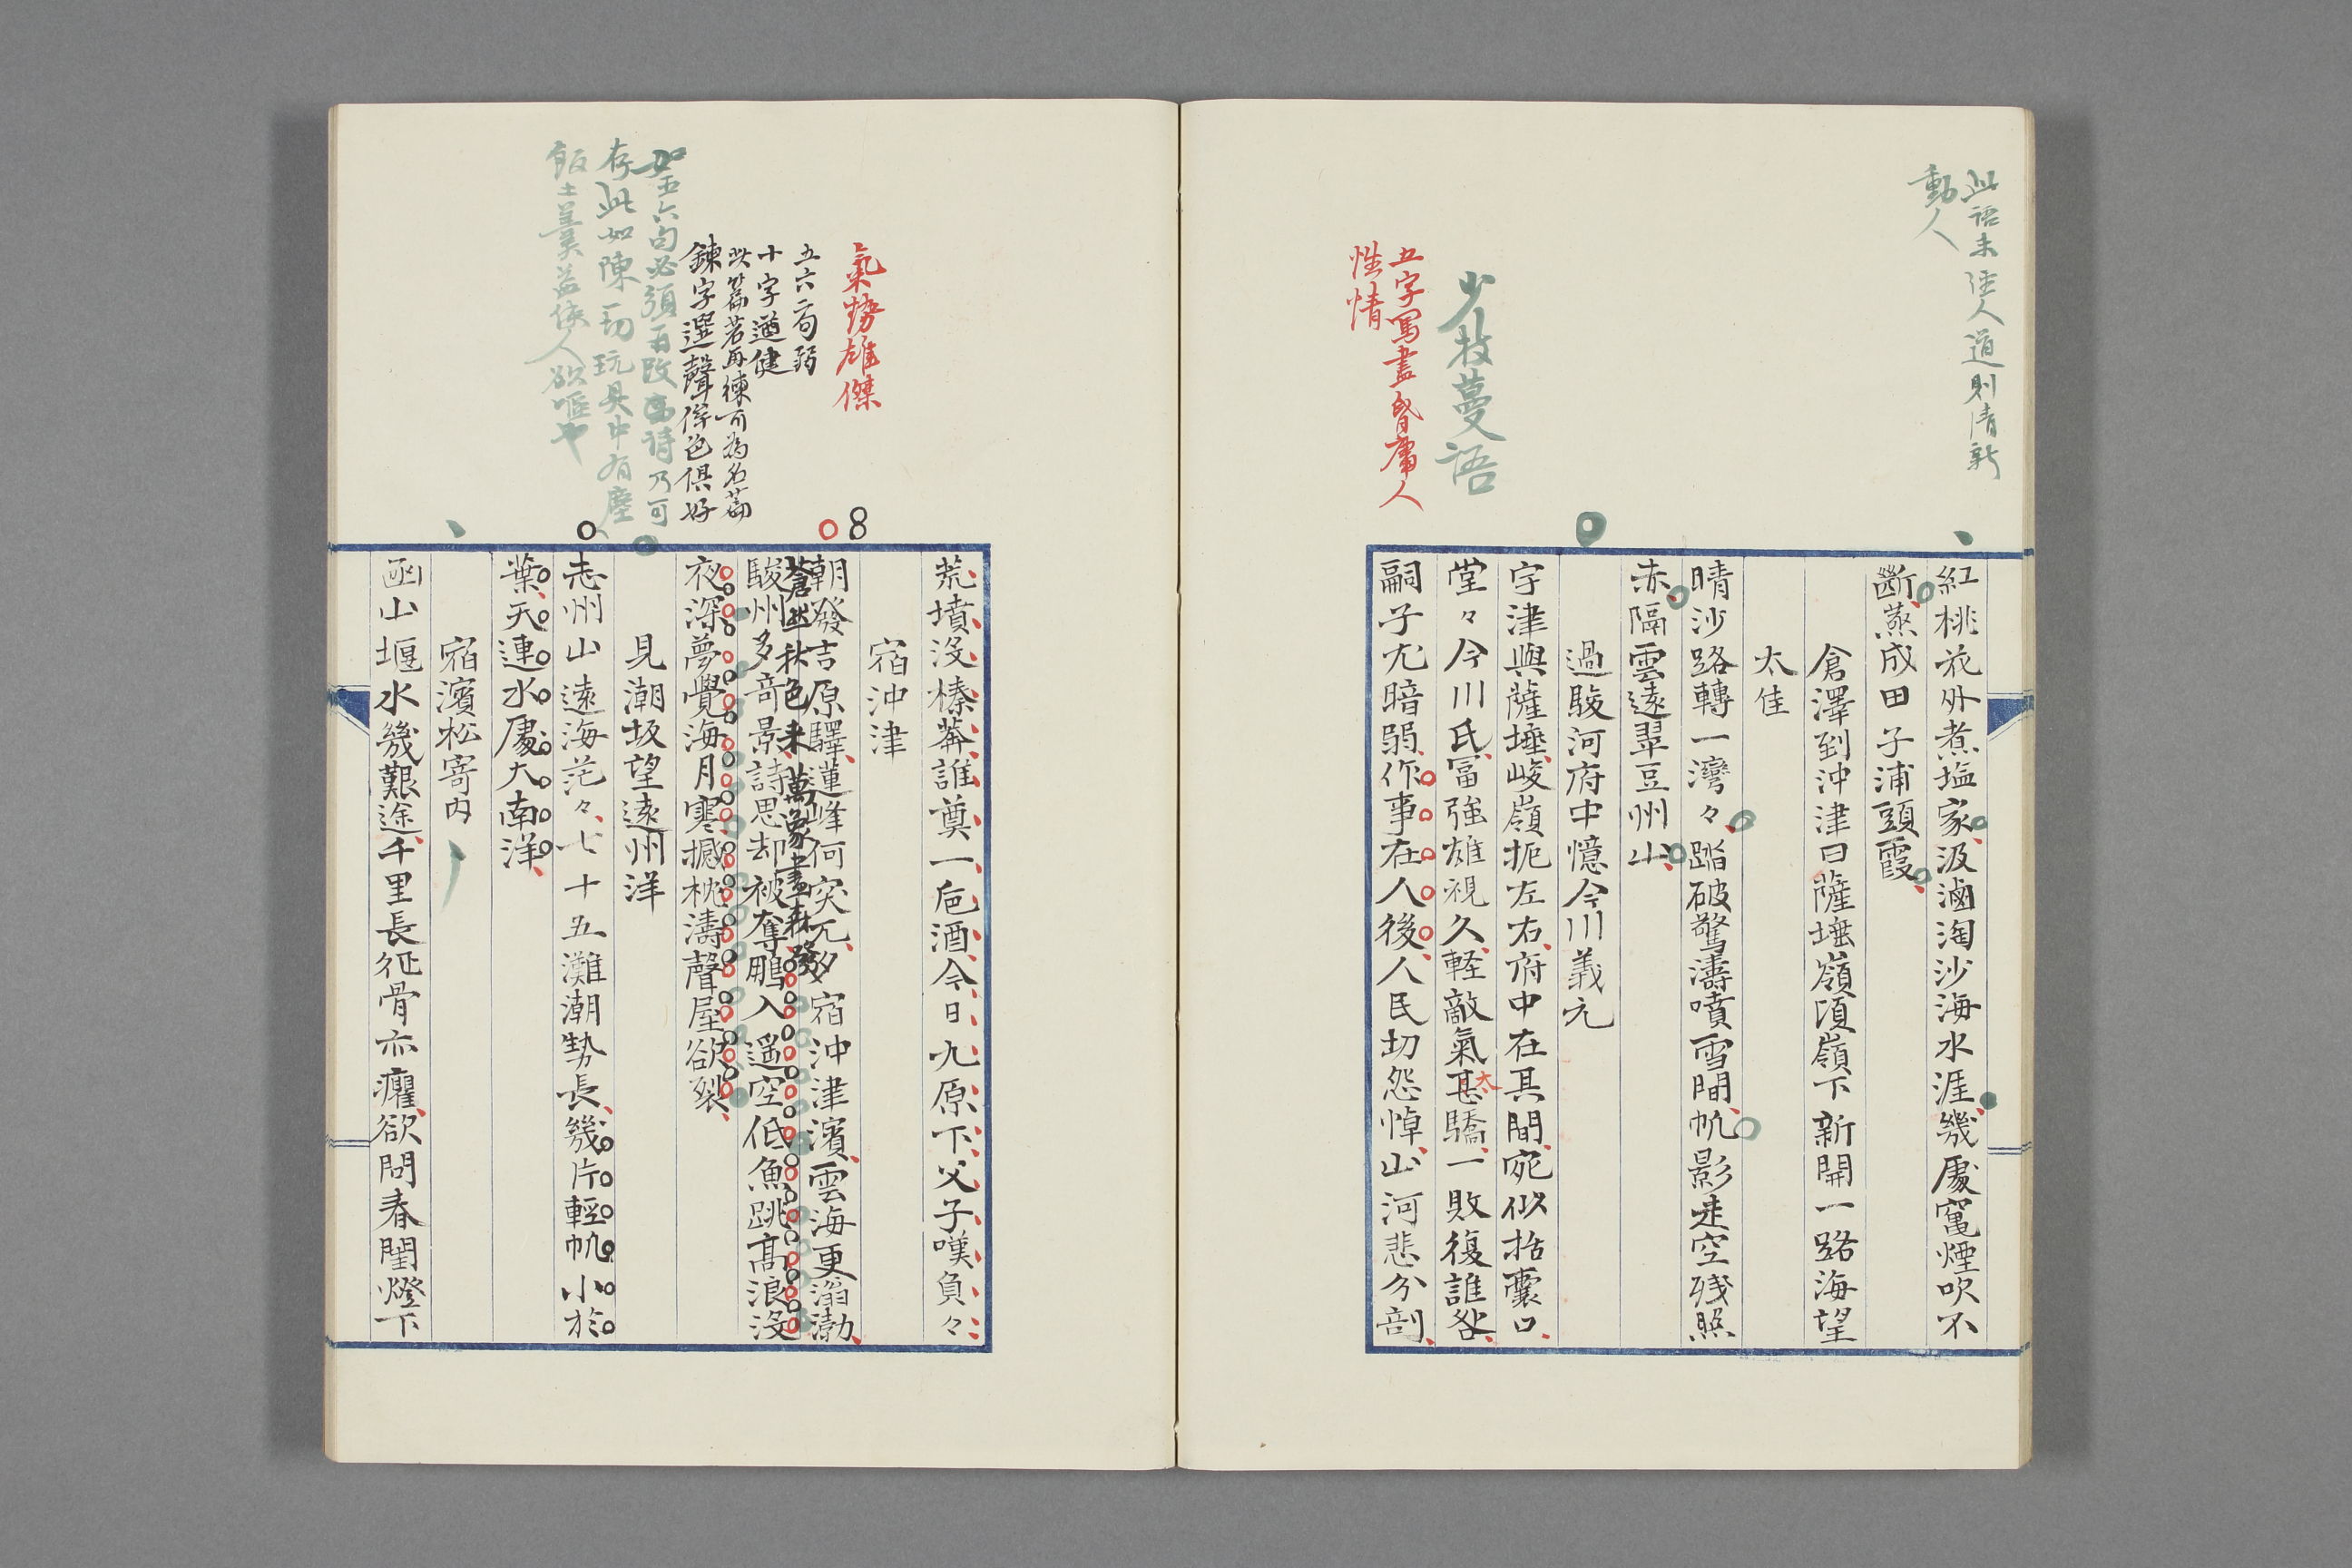 此語未經人道則清新
動人
少杜蔓語
五字寫盡昏庸人
性情
紅桃花外煮塩家汲滷淘沙海水涯幾處竃煙吹不
斷蒸成田子浦頭霞
倉澤到沖津曰薩埵嶺頂嶺下新開一路海望
太佳
晴沙路轉一灣々踏破驚濤噴雪間帆影走空残照
赤隔雲遠翠豆州山
過駿河府中憶今川義元
宇津與薩埵峻嶺扼左右府中在其間宛似括囊口
堂々今川氏冨強雄視久軽敵氣甚驕一敗復誰咎
太
嗣子尤暗弱作事在人後人民切怨悼山河悲分剖
氣勢雄傑
五六二句弱
十字遒健
此篇若再練可為名篇
鍊字選聲倶色倶好
如五六句必須再改此詩乃可
存此如陳一切玩具中有塵
飯土羮益使人欲嘔也
荒墳没榛莽誰奠一巵酒今日九原下父子嘆負々
宿沖津
朝發吉原驛蓮峰何突兀夕宿沖津濱雲海更滃渤
蒼茫秋色来萬象盡森發
駿州多竒景詩思却被奪鵬入遥空低魚跳髙浪没
夜深夢覺海月寒撼枕濤聲屋欲裂
見潮坂望遠州洋
志州山遠海茫々七十五灘潮勢長幾片輕帆小於
葉天連水處大南洋
宿濱松寄内
凾山堰水幾艱途千里長征骨亦癯欲問春閨燈下